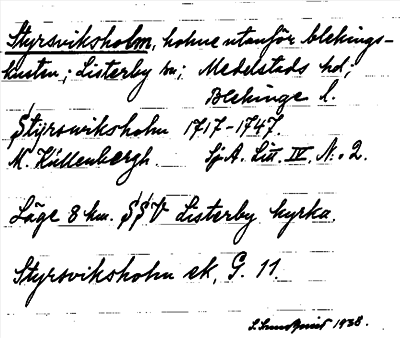 Styrsviksholm, holme utanför blekings-
kusten; Listerby sn; Medelstads hd;
Blekinge l.
Styrsviksholm 1717-1747.
M. Küllenbergh. SjA. Litt. IV, N:o 2.
Läge 8 km. SSV Listerby kyrka.
Styrsviksholm ek, G. 11.
S. Sundqvist 1938.